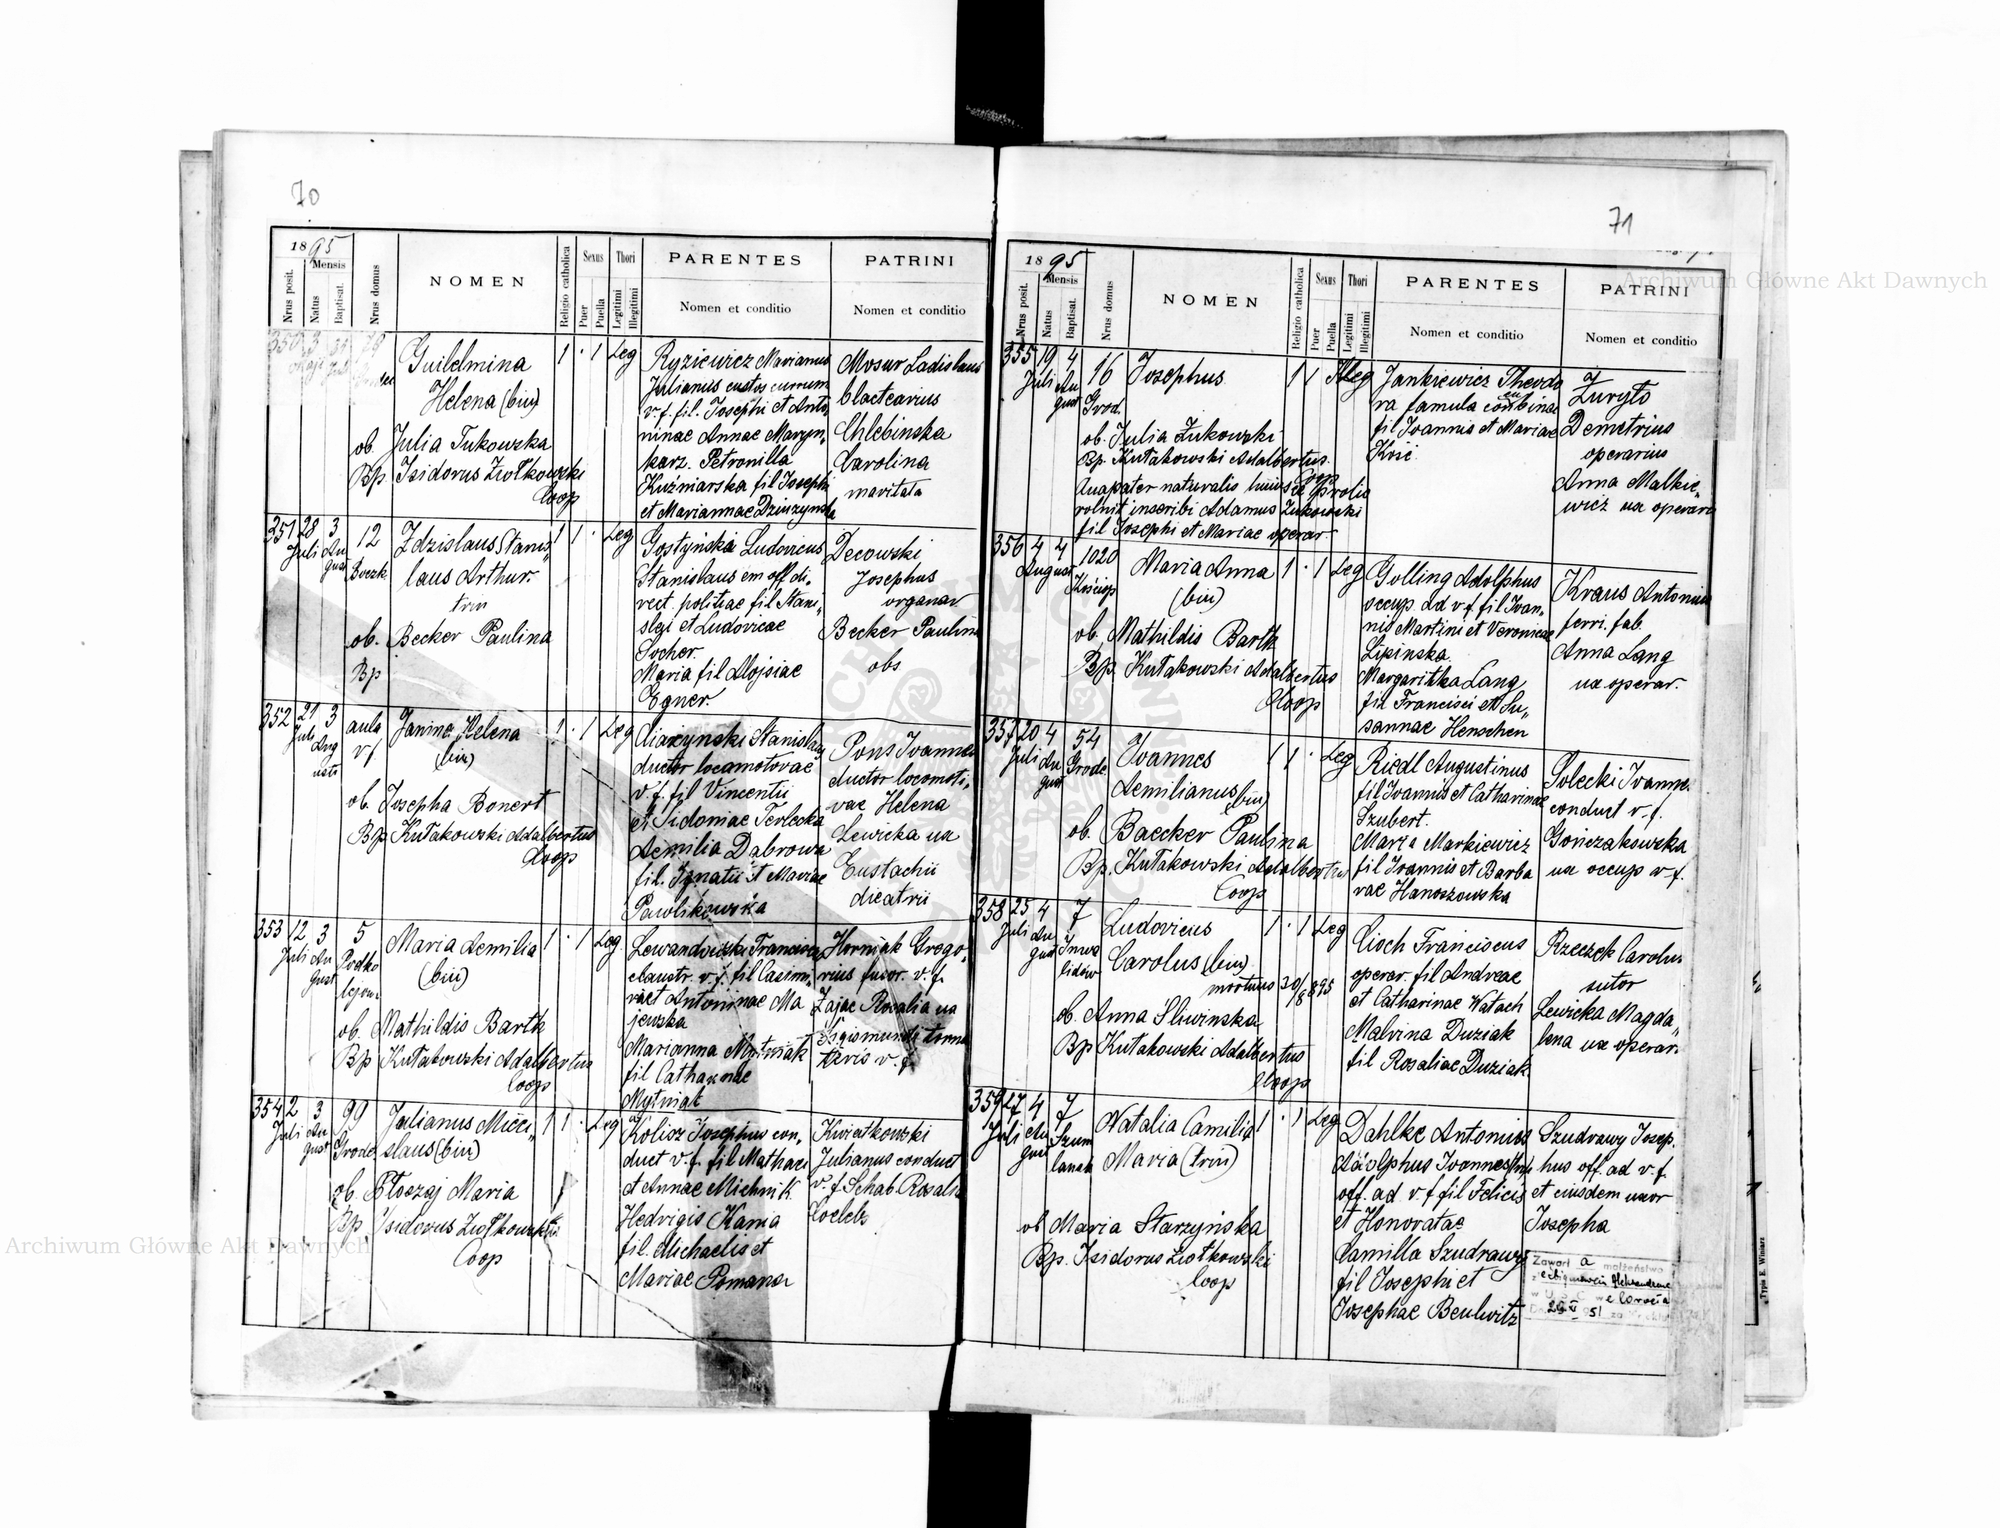 70
1895
Mensis
Nrus posit.
Natus
Baptisat.
Nrus domus
NOMEN
Religio catholica
Sexus
Puer
Puella
Thori
Legitimi
Illegitimi
PARENTES
Nomen et conditio
PATRINI
Nomen et conditio
350 3 31 79
Guilelmina
Helena (bin)
ob. Julia Tukowska
Bp. Isidorus Ziołkowski
Coop
1 · 1 Leg
Ryziewicz Marianus
Julianus custos curruum
v. f. fil. Josephi et Anto-
ninae Annae Marzyn-
karz. Petronilla
Kuźniarska fil Josephi
et Mariannae Dziurzynska
Mosur Ladislaus
Chlebinska
Carolina
maritata
351 28 3 12
Juli Au
gust
Zdzislaus Stanis-
laus Arthur
trin
ob. Becker Paulina
Bp
1 1 · Leg
Gostyński Ludovicus
Stanislaus em off di-
rect. politiae fil Stani-
slai et Ludovicae
Socher.
Maria fil Alojsiae
Egner.
Decowski
Josephus
organar
Becker Paulina
obs
352 21 3 aula
Juli Aug v f
usti
Janina Helena
(bin)
ob. Josepha Bonert
Bp Kułakowski Adalbertus
Coop
1 · 1 Leg
Stanislaus
ductor locomotovae
v. f. fil Vincentii
et Sidoniae Terlecka
Aemilia Dąbrowa
fil. Ignatii et Mariae
Pawlikowska
Pons Ioannes
ductor locomoti-
vae Helena
Lewicka ux
Eustachii
353 12 3 5
Juli Au
gust
Maria Aemilia
(bin)
ob. Mathildis Barth
Bp Kułakowski Adalbertus
Coop
1 · 1 Leg
Lewandowski Franciscus
claustr. v. f. fil Casimi-
ri et Antoninae Ma
jewska
Marianna Mytniak
fil Catharinae
Mytniak
Horniak Grego-
rius v. f.
Zając Rosalia ux
Sigismundi
v. f
354 2 3 99
Juli Au
gust
Grode
Julianus Mieci-
slaus (bin)
ob. Błoczaj Maria
Bp Isidorus Ziołkowski
Coop
1 1 · Leg
Kolisz Josephus con-
duct v. f. fil Mathaei
et Annae Michnik
Hedvigis Kania
fil. Michaelis et
Mariae Pomana
Kwiatkowski
Julianus conduct
v. f Schab Rosalia
Coeleb
71
1895
Mensis
Nrus posit.
Natus
Baptisat.
Nrus domus
NOMEN
Religio catholica
Sexus
Puer
Puella
Thori
Legitimi
Illegitimi
PARENTES
Nomen et conditio
PATRINI
Nomen et conditio
355 19 4 16
Juli Au
gust
Grod.
Josephus
ob. Julia Żukowski
Bp. Kułakowski Adalbertus
Coop
Qua pater naturalis huius ce prolis
voluit inscribi Adamus Żukowski
fil Josephi et Mariae operar
1 1 Illeg
Jankiewicz Theodo
ra famula
fil Ioannis et Mariae
Kvić
Zuryło
Demetrius
operarius
Anna Malkie-
wicz ux operarii
356 4 4 1020
August
Maria Anna
(bin)
ob. Mathildis Barth
Bp. Kułakowski Adalbertus
Coop
1 · 1 Leg
Golling Adolphus
occup. ad v. f. fil Ioan-
nis Martini et Veronicae
Lipinska
Margaritha Lang
fil Francisci et Su-
sannae Henschen
Kraus Antonius
ferri. fab.
Anna Lang
ux operar.
357 20 4 54
Juli Au
gust
Grode.
Ioannes
Aemilianus (bin)
ob. Baecker Paulina
Bp. Kułakowski Adalbertus
Coop
1 1 · Leg
Riedl Augustinus
fil Ioannis et Catharinae
Szubert.
Maria Markiewicz
fil Ioannis et Barba
rae Hanoszowska
Solecki Ioannes
conduct v. f.
Gończakowska
ux occup v. f.
358 25 4 7
Juli Au
gust
Inwa
lidów
Ludovicus
Carolus (bin)
mortuus 30/8 895
ob. Anna Sliwinska
Bp Kułakowski Adalbertus
Coop
1 · 1 Leg
Cioch Franciscus
operar fil Andreae
et Catharinae Watach
Malvina Duziak
fil Rosaliae Duziak
Rzeczek Carolus
sutor
Lewicka Magda-
lena ux operar.
359 27 4 7
Juli Au
gust
Szum
lansk
Natalia Camilla
Maria (trin)
ob Maria Starzyńska
Bp. Isidorus Ziołkowski
Coop
1 · 1 Leg
Dahlke Antonius
Adolphus Ioannes (trin)
off. ad v. f fil Felicis
et Honoratae
Camilla Szudrawy
fil Josephi et
Josephae Beulwitz
Szudrawy Josep-
hus off. ad v. f
et eiusdem uxor
Josepha
Zawarł a małżeństwo
Typis E. Winiarz
Archiwum Główne Akt Dawnych
Archiwum Główne Akt Dawnych